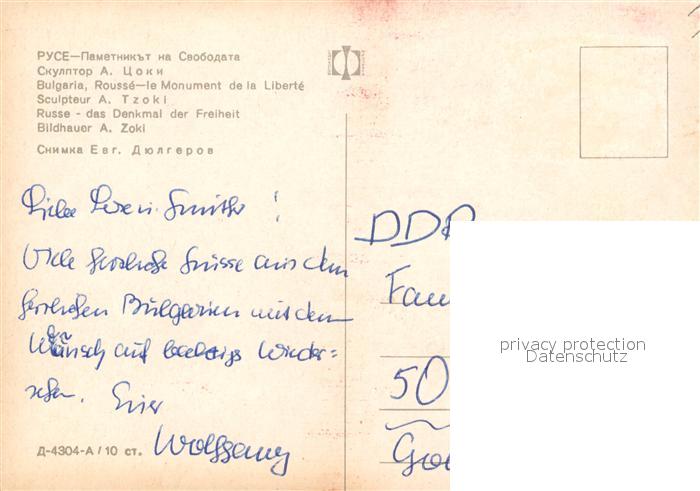 РУСЕ—Паметникът на Свободата
Скулптор А. Цоки
Bulgaria, Roussé—le Monument de la Liberté
Sculpteur A. Tzoki
Russe - das Denkmal der Freiheit
Bildhauer A. Zoki
Снимка Евг. Дюлгеров
Liebe
Viele herzliche Grüsse aus dem
herrlichen Bulgarien mit dem
Wunsch auf baldiges Wieder=
sehen. Euer
Wolfgang
Д-4304-А/10 ст.
DDR
Fam
50
privacy protection
Datenschutz